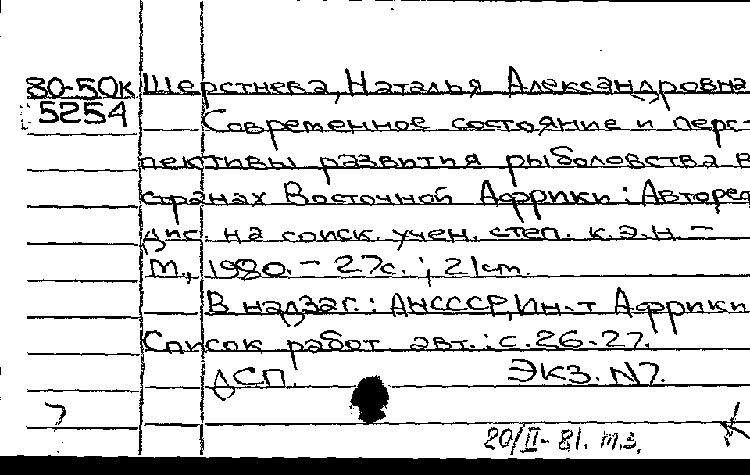 80-50к Шерстнева, Наталья Александровна
5254 Современное состояние и перс-
пективы развития рыболовства в
странах Восточной Африки: Автореф
дис. на соиск. учен. степ. к.э.н. –
М., 1980. – 27с.; 21см.
В надзаг.: АНСССР, Ин-т Африки
Список работ авт.: с. 26-27.
ДСП. Экз. N7.
20/II-81. т.з.